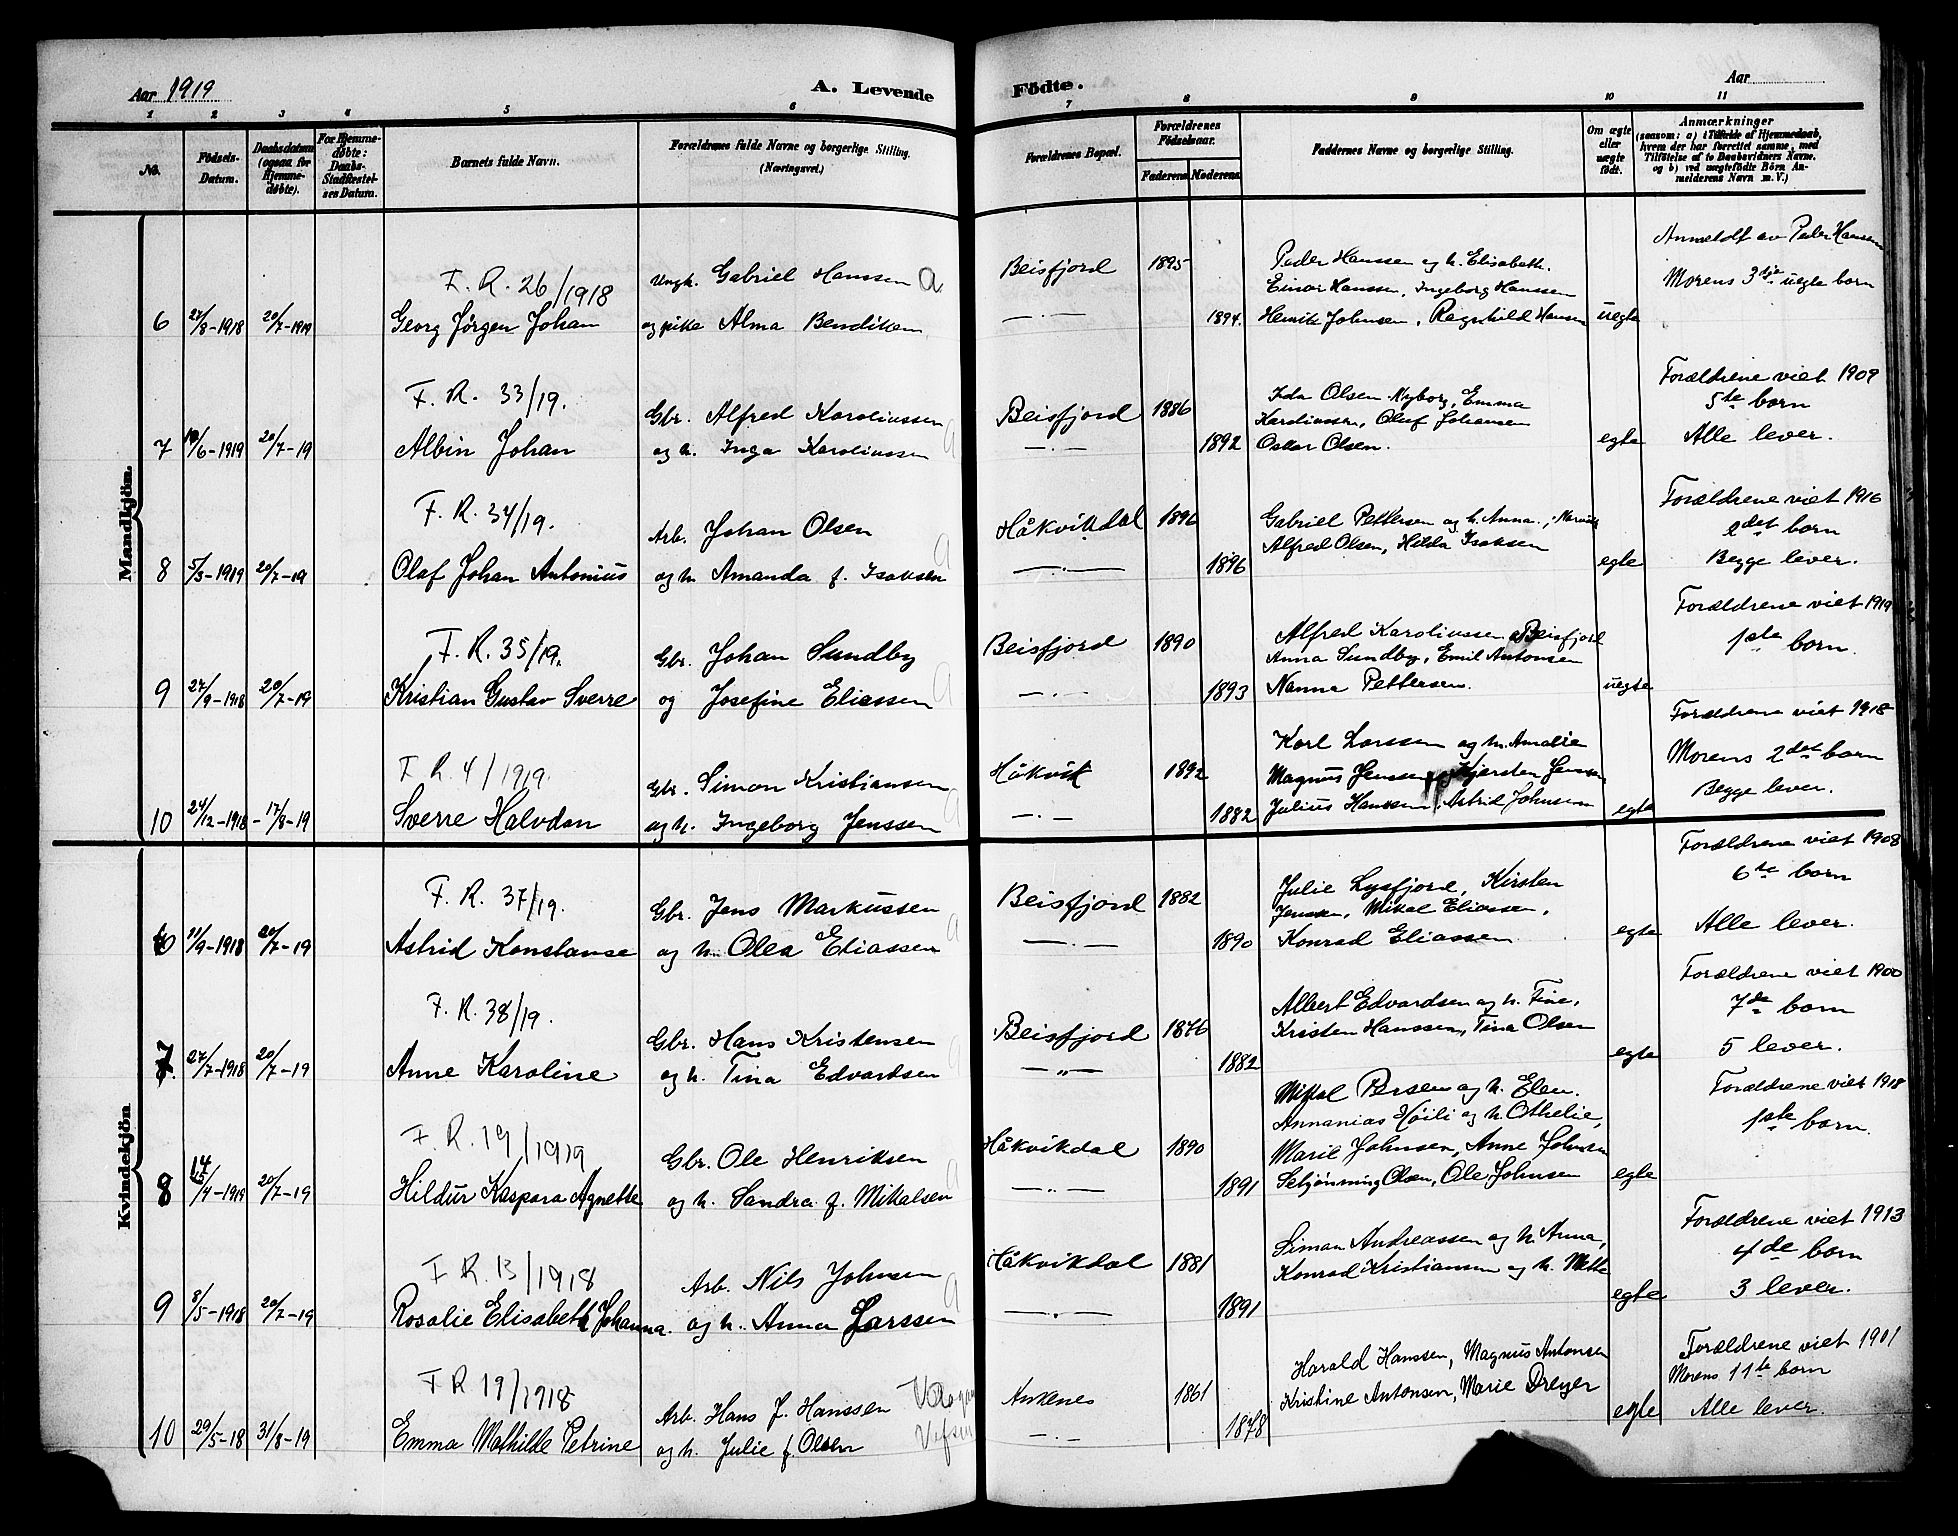 Aar 1919
A. Levende
Födte.
Aar
1 2 3 4 5 6 7 8 9 10 11
No.
Födsels-
Datum.
Daabsdatum
(ogsaa for
Hjemme-
døbte).
For Hjemme-
døbte:
Daabs-
Stadfæstel-
ses Datum.
Barnets fulde Navn.
Forældrenes fulde Navne og borgerlige Stilling.
(Næringsvei.)
Forældrenes Bopæl.
Forældrenes
Födselsaar.
Faderens Moderens
Faddernes Navne og borgerlige Stilling.
Om ægte
eller
uægte
født.
Anmærkninger
(saasom: a) i Tilfælde af Hjemmedaab,
hvem der har forrettet samme, med
Tilføielse af to Daabsvidners Navne,
og b) ved uægtefødte Børn An-
melderens Navn m. V.)
Mandkjön.
F. R. 26/1918
6 /8-1918 20/7-1919 Georg Jørgen Johan
Ungk. Gabriel Hanssen a
og pike Alma Bendiksen
Beisfjord 1895
—.— 1894.
Peder Hanssen og h. Elisabeth.
Einar Hanssen, Ingeborg Hanssen
Henrik Johnsen, Ragnhild Hansen
uegte
Anmeldt av Peder Hansen
Morens 3dje uegte born
F. R. 33/19.
7 /6-1919 20/7-19 Albin Johan
Gbr. Alfred Karoliussen
og h. Inga Karoliussen
Beisfjord 1886
—.— 1892
Ida Olsen Nyborg, Emma
Karoliussen, Oluf Johansen
Oskar Olsen.
egte
Forældrene viet 1909
5te born
Alle lever.
F. R. 34/19.
8 5/5-1919 20/7-19 Olaf Johan Antonius
Arb. Johan Olsen
og h. Amanda f. Isaksen
Håkvikdal 1896
—.— 1896
Gabriel Pettersen og h. Anna.
Alfred Olsen, Hilda Isaksen
egte
Forældrene viet 1916
2det born
Begge lever.
F. R. 35/19.
9 27/9-1918 20/7-19 Kristian Gustav Sverre
Gbr. Johan Sundby
og Josefine Eliassen
Beisfjord 1890
—.— 1893
Alfred Karoliussen Beisfjord
Anna Sundby, Emil Antonsen
Nanna Pettersen.
uegte
Forældrene viet 1919
1ste born.
F. R. 4/1919.
10 24/12-1918 - 17/8-19 Sverre Halvdan
Gbr. Simon Kristiansen
og h. Ingeborg Jenssen
Håkvik 1892
—.— 1882
Karl Larssen og h. Amalie
Magnus Jenssen og Kjersten Jenssen
Julius Hanssen, Astrid Johnsen
egte
Forældrene viet 1918
Morens 2det born
Begge lever.
Kvindekjön
F. R. 37/19.
6 11/9-1918 20/7-19 Astrid Konstanse
Gbr. Jens Markussen
og h. Olea Eliassen
Beisfjord 1882
—.— 1890
Julie Lysfjord, Kirsten
Jenssen, Mikal Eliassen,
Konrad Eliassen
egte
Forældrene viet 1908
6te born
Alle lever.
F. R. 38/19.
7 27/7-1918 20/7-19 Anne Karoline
Gbr. Hans Kristensen
og h. Tina Edvardsen
Beisfjord 1876
—„— 1882
Albert Edvardsen og h. Tine,
Kristen Hanssen, Tina Olsen
egte
Forældrene viet 1900
7de born
5 lever.
F. R. 19/1919
8 14/4-1919 20/7-19 Hildur Kaspara Agnette
Gbr. Ole Henriksen
og h. Sandra f. Mikalsen
Håkvikdal 1890
—„— 1891
Mikal Persen og h. Elen.
Annanias Høili og h. Othelie,
Marie Johnsen, Anne Johnsen
Olsen, Ole Johnsen
egte
Forældrene viet 1918
1ste born.
F. R. 13/1918
9 8/5-1918 20/7-19 Rosalie Elisabeth Johanna.
Arb. Nils Johnsen
og h. Anna Larssen
Håkvikdal 1881
—„— 1891
Simon Andreassen og h. Anna,
Konrad Kristiansen og h. Mette
egte
Forældrene viet 1913
4de born
3 lever.
F R 19/1918
10 29/5-18 31/8-19 Emma Mathilde Petrine
Arb. Hans J. Hanssen
og h. Julie f. Olsen
Ankenes 1861
—.— 1878
Harald Hanssen, Magnus Antonsen
Kristine Antonsen, Marie Dreyer
egte
Forældrene viet 1901
Morens 11te born
Alle lever.